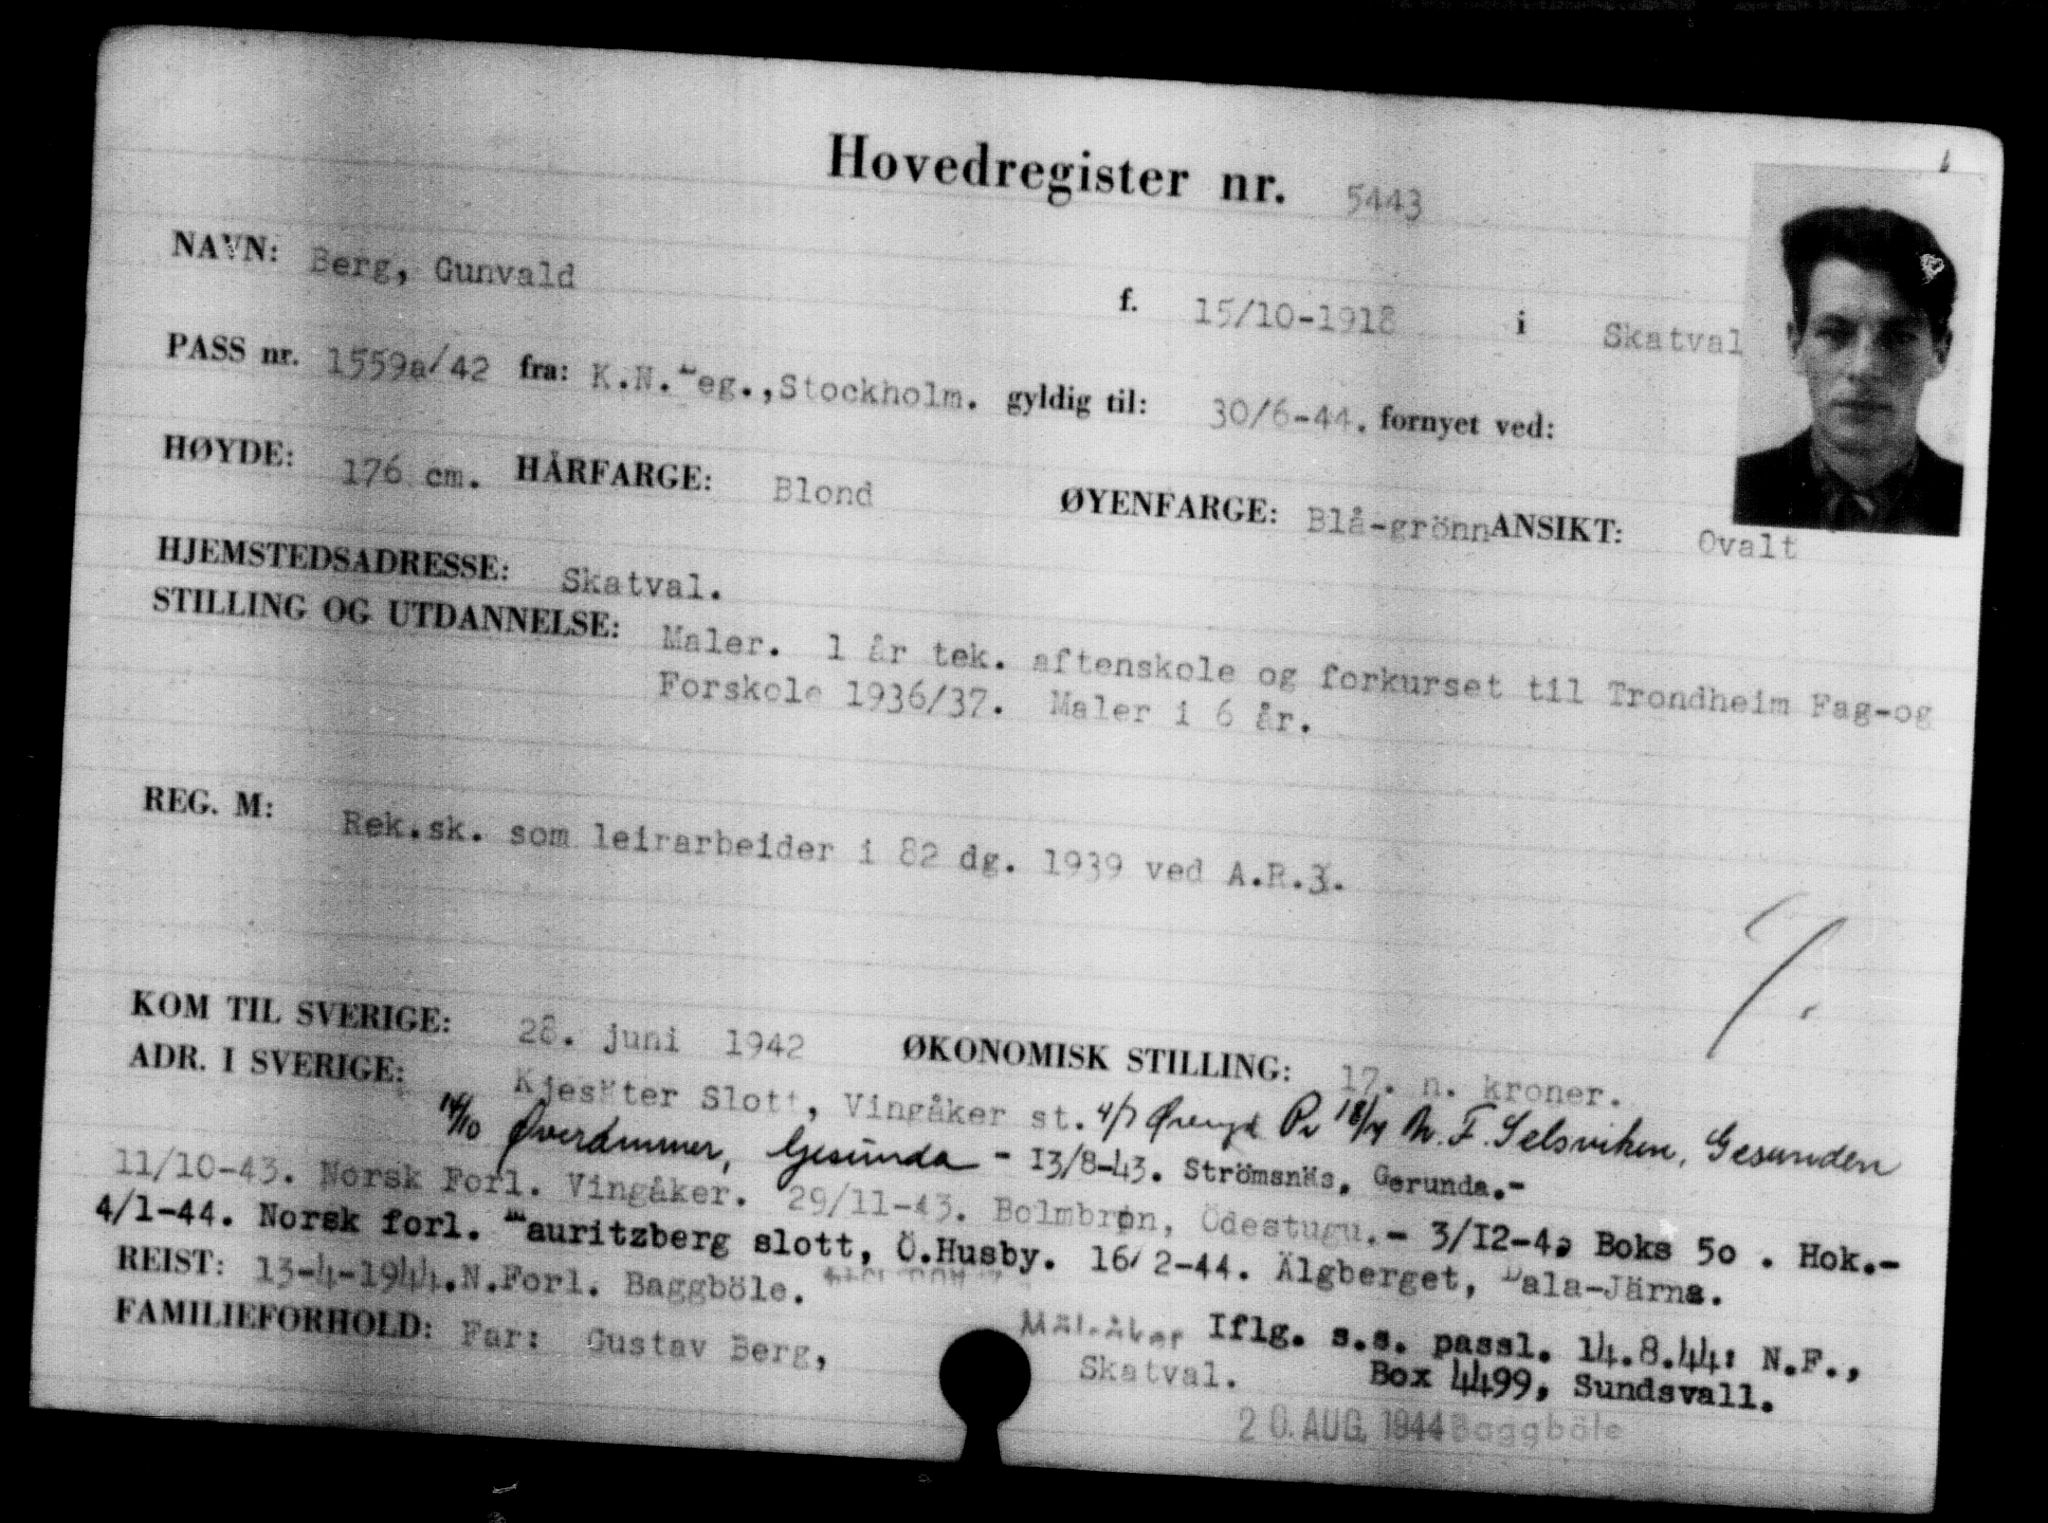 Hovedregister nr. 5443
NAVN: Berg, Gunvald f. 15/10-1918 i Skatval
PASS nr. 1559a/42 fra: K.N.Leg.,Stockholm. gyldig til: 30/6-44. fornyet ved:
HØYDE: 176 cm. HÅRFARGE: Blond ØYENFARGE: Blå-grönn ANSIKT: Ovalt
HJEMSTEDSADRESSE: Skatval.
STILLING OG UTDANNELSE: Maler. 1 år tek. aftenskole og forkurset til Trondheim Fag-og
Forskole 1936/37. Maler i 6 år.
REG. M: Rek.sk. som leirarbeider i 82 dg. 1939 ved A.R.3.
KOM TIL SVERIGE: 28. juni 1942 ØKONOMISK STILLING: 17. n. kroner.
ADR. I SVERIGE: Kjesäter Slott, Vingåker st. 4/7 18/7 N.F. Selsviken, Gesunden
14/10 Överammer, Gesunda - 13/8-43. Strömsnäs, Gerunda.-
11/10-43. Norsk Forl. Vingåker. 29/11-43. Bolmbron, Ödestugu.- 3/12-43 Boks 50 . Hok.-
4/1-44. Norsk forl. Mauritzberg slott, Ö.Husby. 16/2-44. Älgberget, Dala-Järna.
REIST: 13-4-1944.N.Forl. Baggböle.
FAMILIEFORHOLD: Far: Gustav Berg, Iflg. s.s. passl. 14.8.44: N.F.,
Skatval. Box 4499, Sundsvall.
20. AUG. 1944 Baggböle